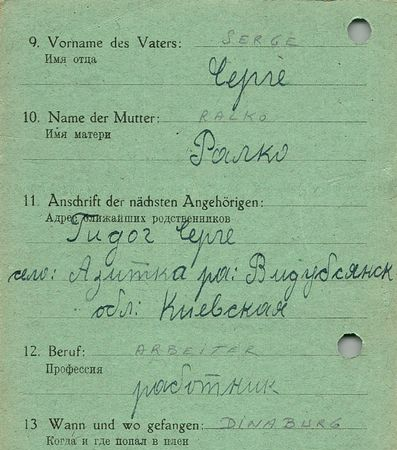 9. Vorname des Vaters: SERGE
Имя отца
Серге
10. Name der Mutter: RALKO
Имя матери
Ралко
11. Anschrift der nächsten Angehörigen:
Адрес ближайших родственников
Гидог Серге
село: Азитка ра: Видубсянск
обл: Киевская
12. Beruf: ARBEITER
Профессия
работник
13 Wann und wo gefangen: DINABURG
Когда и где попал в плен